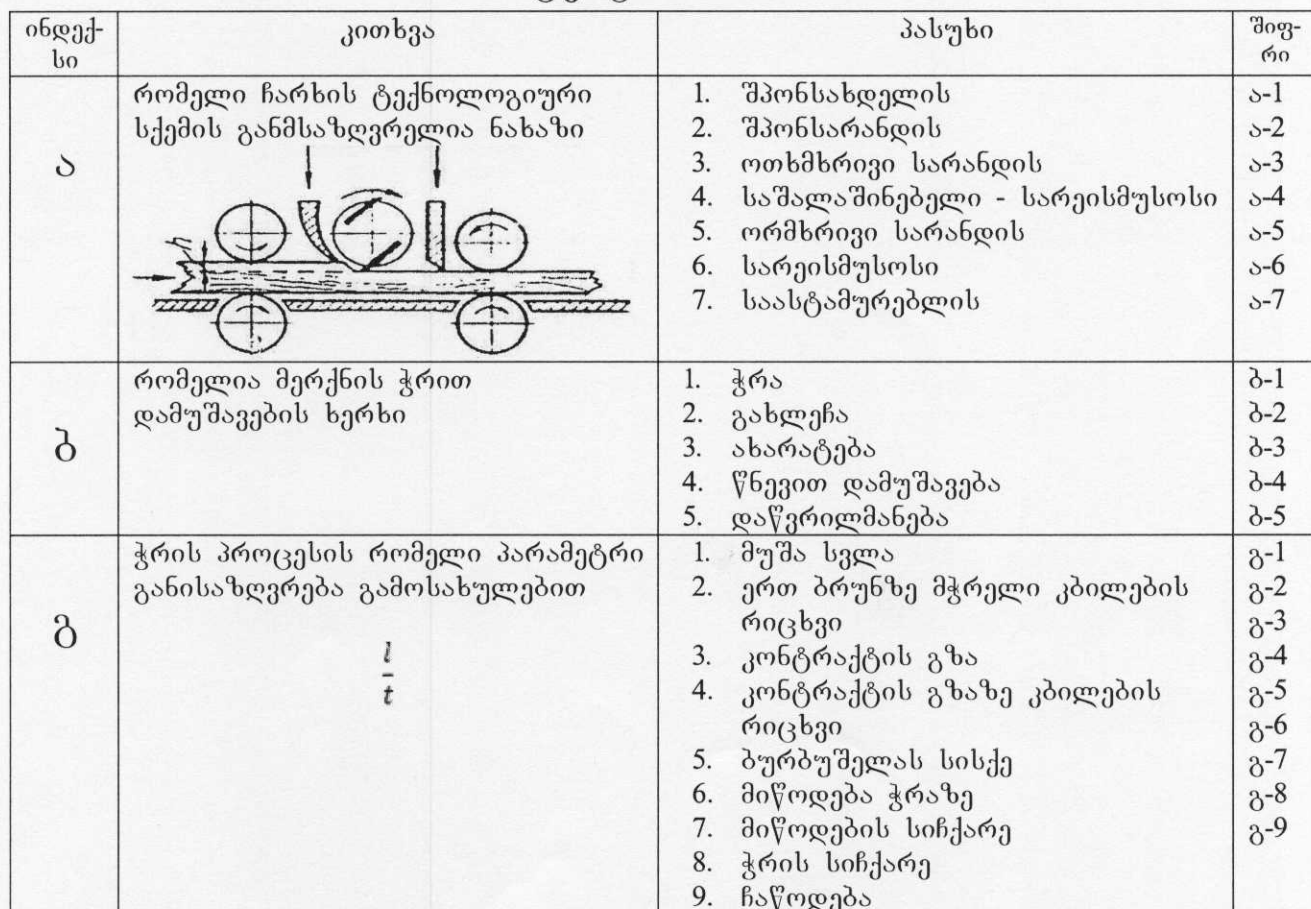 ინდექ-
სი
კითხვა
პასუხი
შიფ-
რი
ა
რომელი ჩარხის ტექნოლოგიური
სქემის განმსაზღვრელია ნახაზი
h
1. შპონსახდელის
2. შპონსარანდის
3. ოთხმხრივი სარანდის
4. საშალაშინებელი - სარეისმუსოსი
5. ორმხრივი სარანდის
6. სარეისმუსოსი
7. საასტამურებლის
ა-1
ა-2
ა-3
ა-4
ა-5
ა-6
ა-7
ბ
რომელია მერქნის ჭრით
დამუშავების ხერხი
1. ჭრა
2. გახლეჩა
3. ახარატება
4. წნევით დამუშავება
5. დაწვრილმანება
ბ-1
ბ-2
ბ-3
ბ-4
ბ-5
გ
ჭრის პროცესის რომელი პარამეტრი
განისაზღვრება გამოსახულებით
l
t
1. მუშა სვლა
2. ერთ ბრუნზე მჭრელი კბილების
რიცხვი
3. კონტრაქტის გზა
4. კონტრაქტის გზაზე კბილების
რიცხვი
5. ბურბუშელას სისქე
6. მიწოდება ჭრაზე
7. მიწოდების სიჩქარე
8. ჭრის სიჩქარე
9. ჩაწოდება
გ-1
გ-2
გ-3
გ-4
გ-5
გ-6
გ-7
გ-8
გ-9